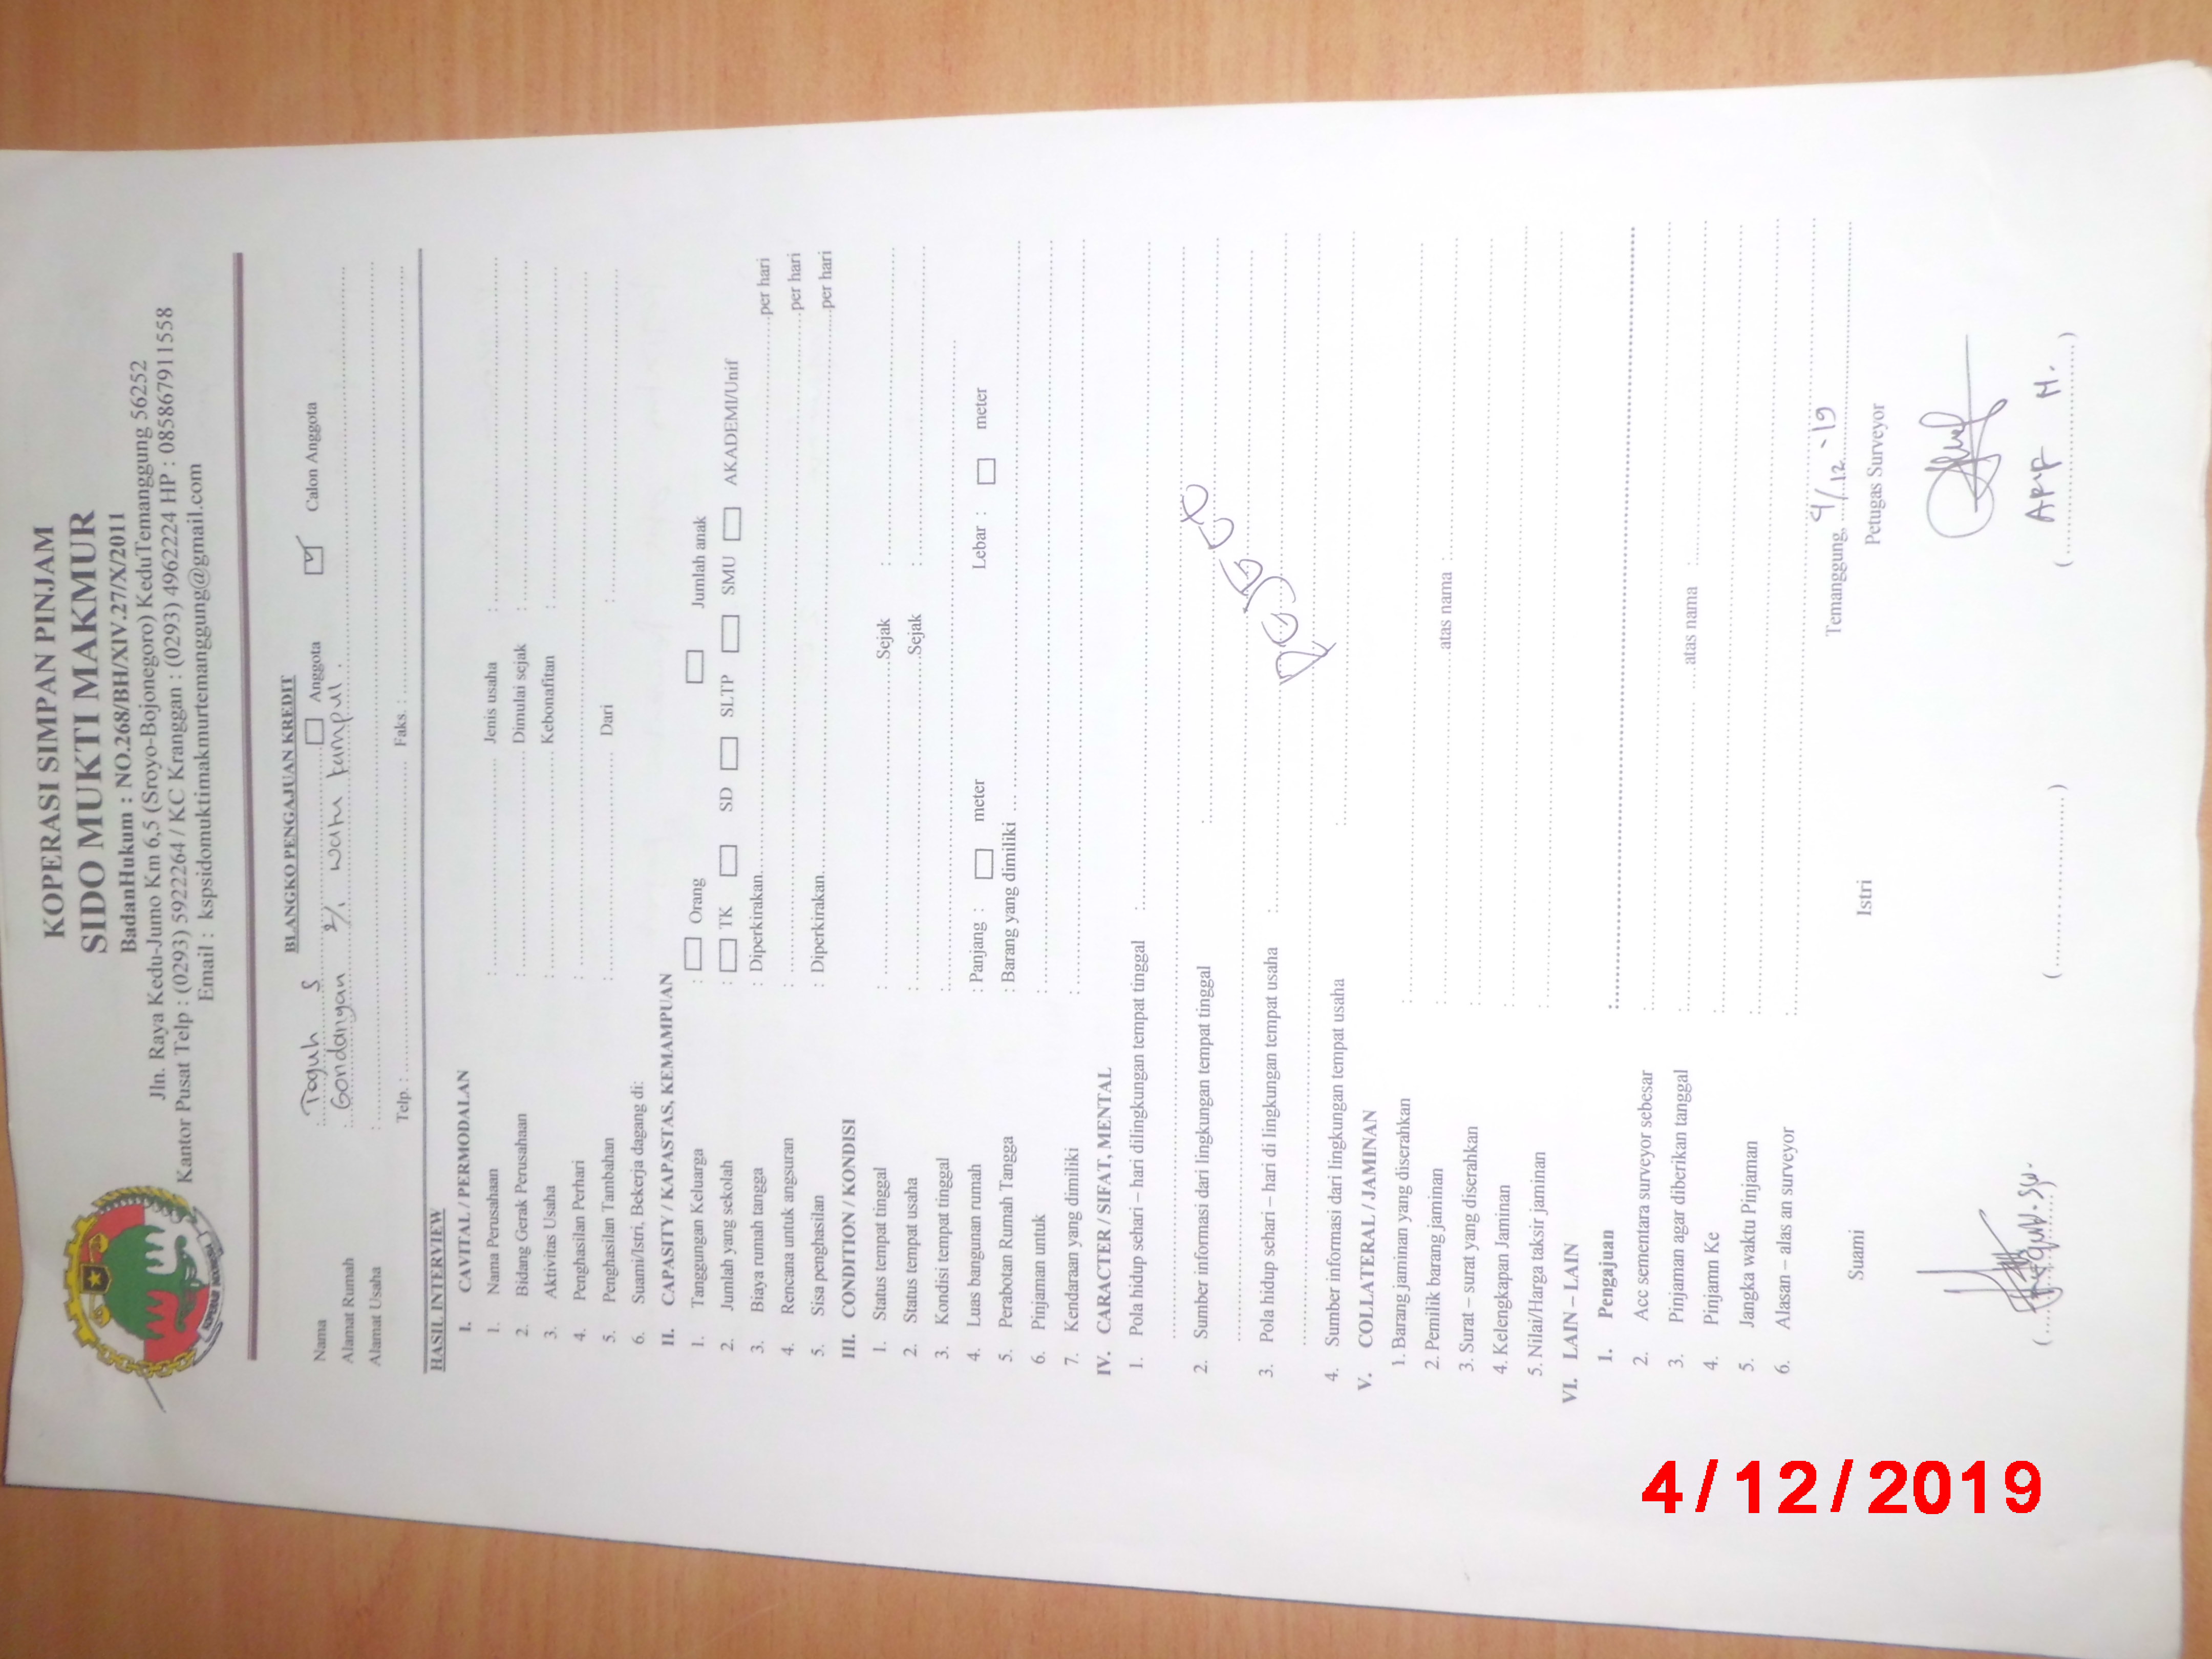 KOPERASI SIMPAN PINJAM
SIDO MUKTI MAKMUR
BadanHukum : NO.268/BH/XIV.27/X/2011
Jln. Raya Kedu-Jumo Km 6,5 (Sroyo-Bojonegoro) KeduTemanggung 56252
Kantor Pusat Telp : (0293) 5922264 / KC Kranggan : (0293) 4962224 HP : 085867911558
Email : kspsidomuktimakmurtemanggung@gmail.com
BLANGKO PENGAJUAN KREDIT
Nama : Teguh S Anggota Calon Anggota
Alamat Rumah : Gondangan
Alamat Usaha :
Telp. : Faks. :
HASIL INTERVIEW
I. CAVITAL / PERMODALAN
1. Nama Perusahaan : Jenis usaha :
2. Bidang Gerak Perusahaan : Dimulai sejak :
3. Aktivitas Usaha : Kebonafitan :
4. Penghasilan Perhari :
5. Penghasilan Tambahan : Dari :
6. Suami/Istri, Bekerja dagang di:
II. CAPASITY / KAPASTAS, KEMAMPUAN
1. Tanggungan Keluarga : Orang Jumlah anak
2. Jumlah yang sekolah : TK SD SLTP SMU AKADEMI/Unif
3. Biaya rumah tangga : Diperkirakan per hari
4. Rencana untuk angsuran : per hari
5. Sisa penghasilan : Diperkirakan per hari
III. CONDITION / KONDISI
1. Status tempat tinggal : Sejak :
2. Status tempat usaha : Sejak :
3. Kondisi tempat tinggal :
4. Luas bangunan rumah : Panjang : meter Lebar : meter
5. Perabotan Rumah Tangga : Barang yang dimiliki
6. Pinjaman untuk :
7. Kendaraan yang dimiliki :
IV. CARACTER / SIFAT, MENTAL
1. Pola hidup sehari – hari dilingkungan tempat tinggal :
2. Sumber informasi dari lingkungan tempat tinggal :
3. Pola hidup sehari – hari di lingkungan tempat usaha :
4. Sumber informasi dari lingkungan tempat usaha :
V. COLLATERAL / JAMINAN
1. Barang jaminan yang diserahkan :
2. Pemilik barang jaminan : atas nama :
3. Surat – surat yang diserahkan :
4. Kelengkapan Jaminan :
5. Nilai/Harga taksir jaminan :
VI. LAIN – LAIN
1. Pengajuan :
2. Acc sementara surveyor sebesar :
3. Pinjaman agar diberikan tanggal : atas nama :
4. Pinjamn Ke :
5. Jangka waktu Pinjaman :
6. Alasan – alas an surveyor :
Temanggung, 4/12 -19
Suami Istri Petugas Surveyor
4/12/2019